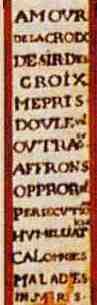 AMOUR
DE LA CROIX
DESIR DES
CROIX
MEPRIS
DOULEvrs
OVTRAges
AFFRONS
OPPROBres
PERSECUTIons
HVMILIAT
CALOMNIES
MALADIES
INJVRES